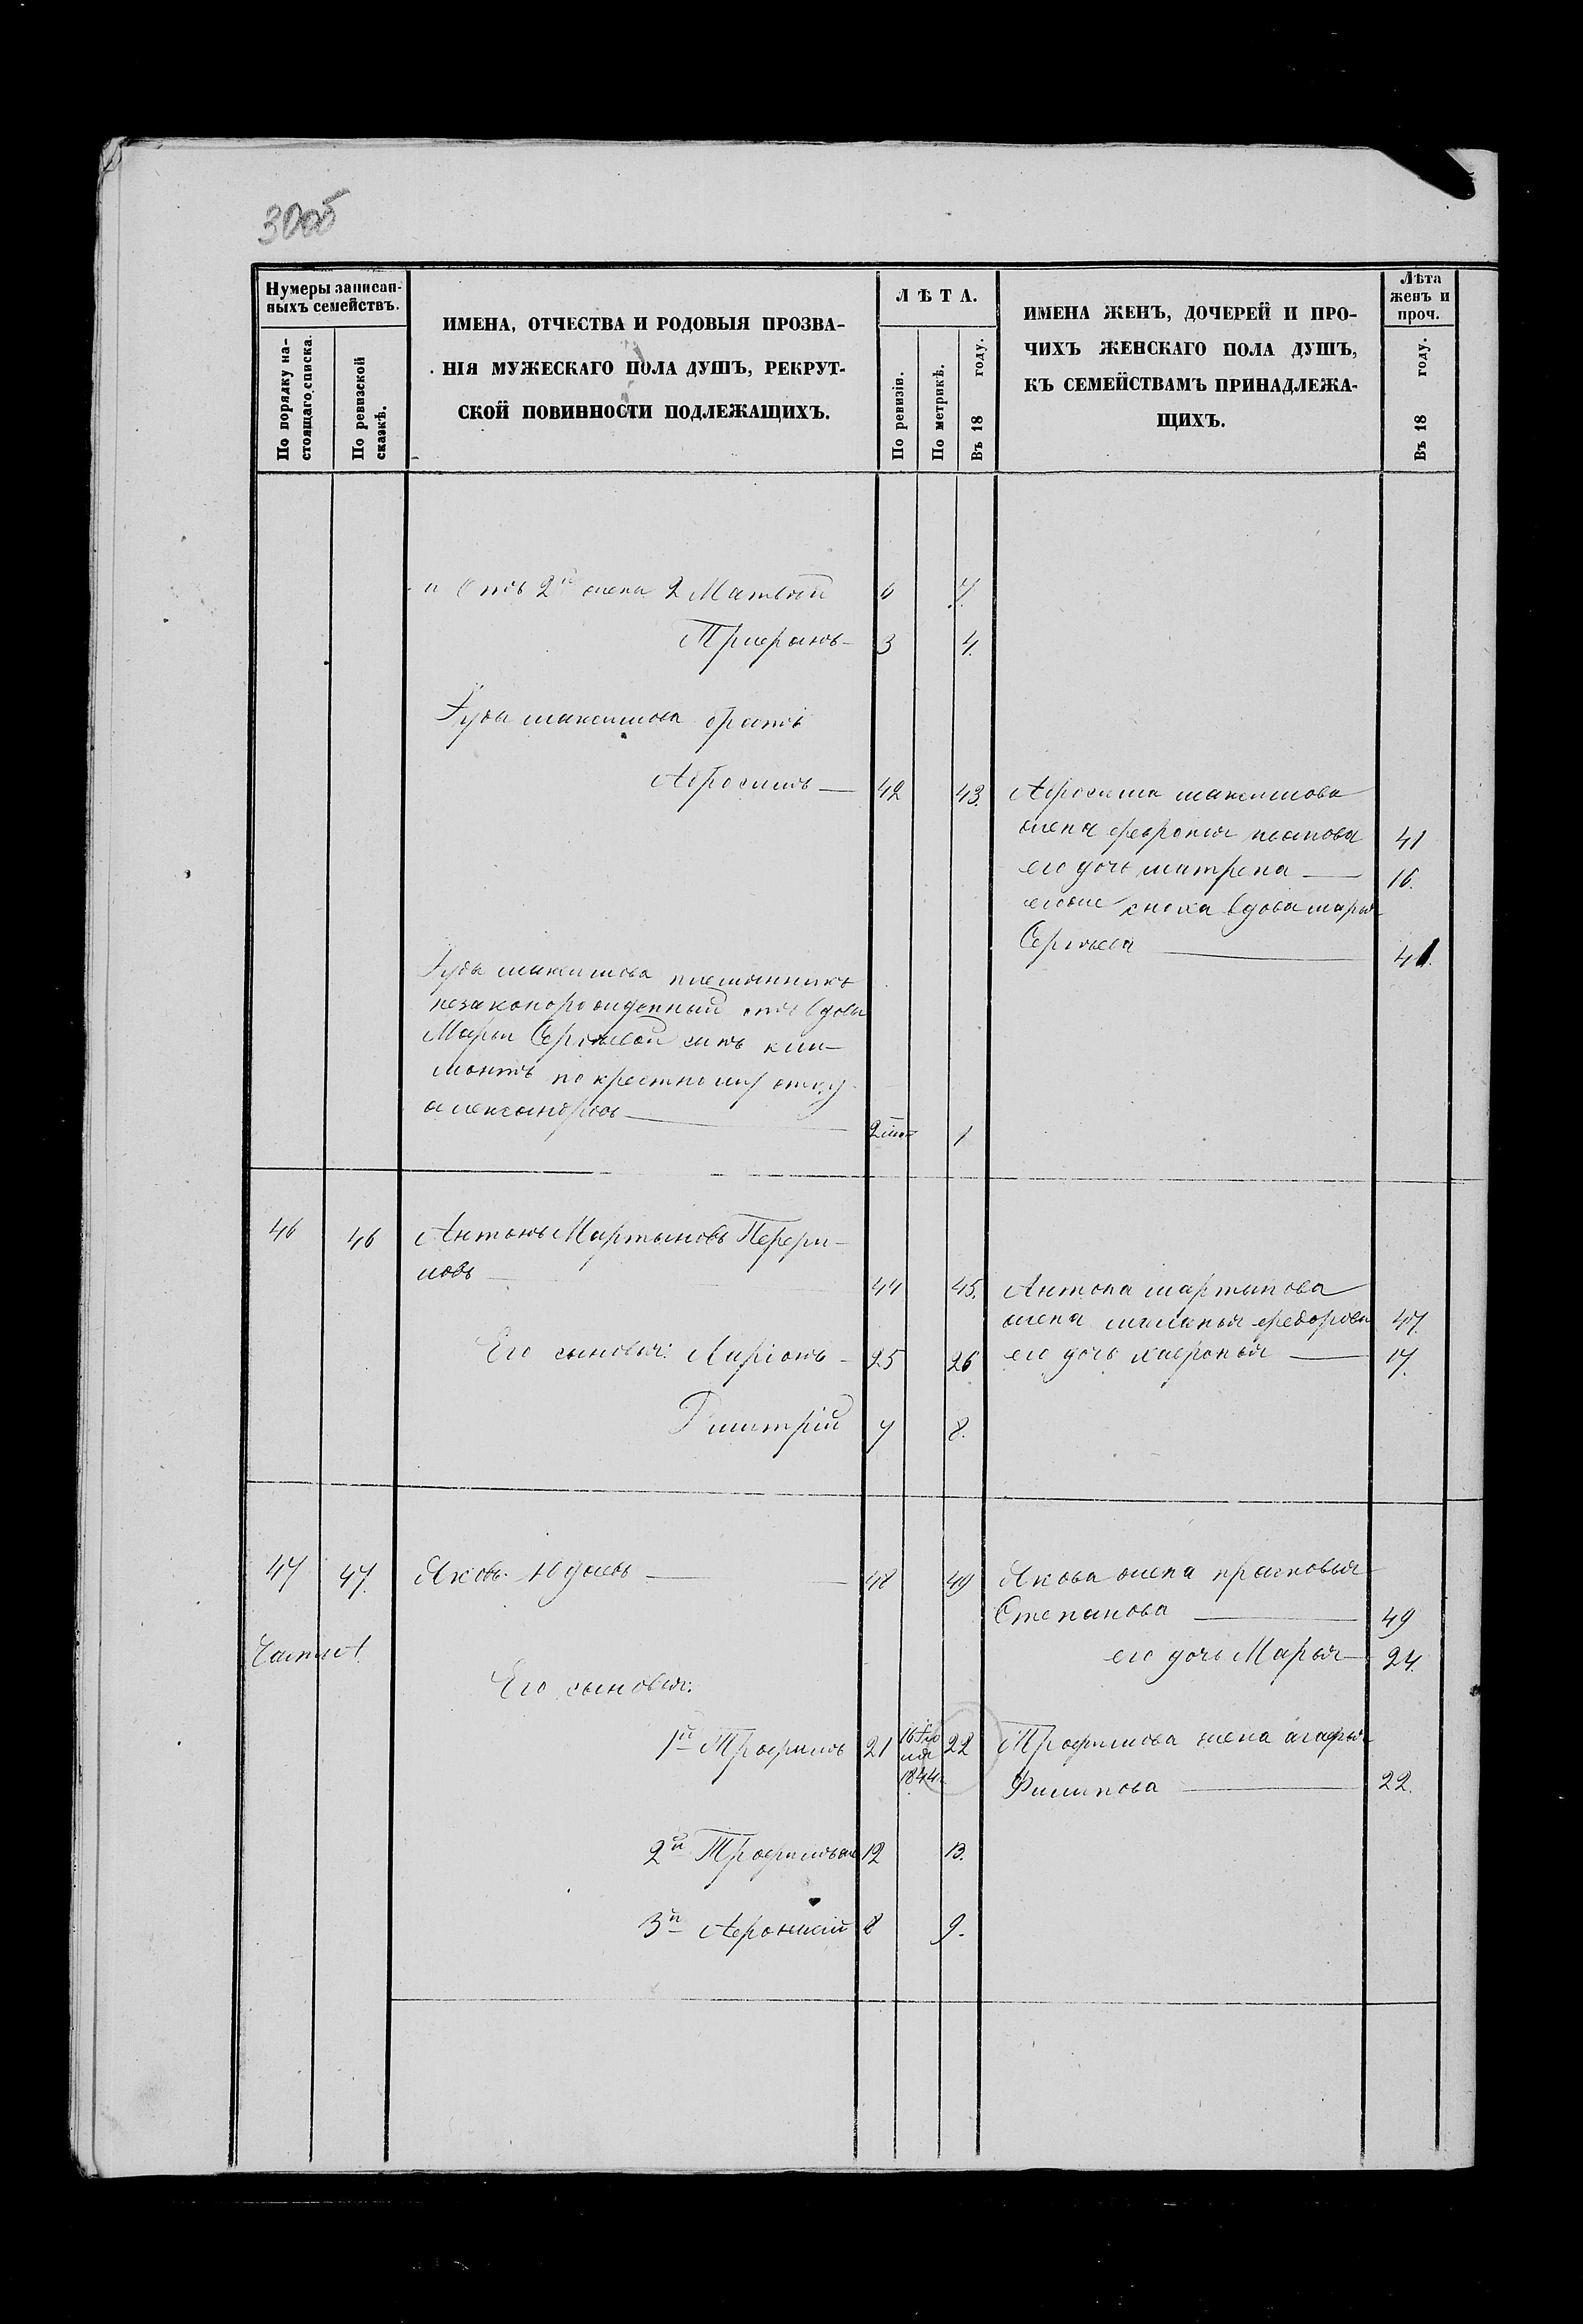 30об
Нумеры записан-
ныхъ семействъ.
По порядку на-
стоящаго списка.
По ревизской
сказкѣ.
ИМЕНА, ОТЧЕСТВА И РОДОВЫЯ ПРОЗВА-
НІЯ МУЖЕСКАГО ПОЛА ДУШЪ, РЕКРУТ-
СКОЙ ПОВИННОСТИ ПОДЛЕЖАЩИХЪ.
ЛѢТА.
По ревизіи.
По метрикѣ.
Въ 18 году.
ИМЕНА ЖЕНЪ, ДОЧЕРЕЙ И ПРО-
ЧИХЪ ЖЕНСКАГО ПОЛА ДУШЪ,
КЪ СЕМЕЙСТВАМЪ ПРИНАДЛЕЖА-
ЩИХЪ.
Лѣта
женъ и
проч.
Въ 18 году.
отъ 2й жены 2 Матвѣй 6 7.
Трифонъ — 3 4.
максимова братъ
Абросимъ — 42 43.
Абросима максимова
жена феврония 41
его дочь матрена — 16.
его же сноха вдова марья
Сергѣева — 41.
максимова племянникъ
незаконорожденный отъ вдовы
Марьи Сергѣевой сынъ кли-
монтъ по крестному отцу
александровъ — 1
46 46 Антонъ Мартыновъ
44 45.
Антона мартынова
жена маланья федорова 47.
его дочь хавронья — 17.
Его сыновья: Ларіонъ — 25 26
Дмитрій 7 8.
47 47. Яковъ — 48 49
Якова жена прасковья
Степанова — 49
его дочь Марья — 24.
Его сыновья:
1й Трофимъ 21 1844 22
Трофимова жена агафья
Филипова — 22.
2й Трофимъ же 12 13.
3й Афонасій 8 9.